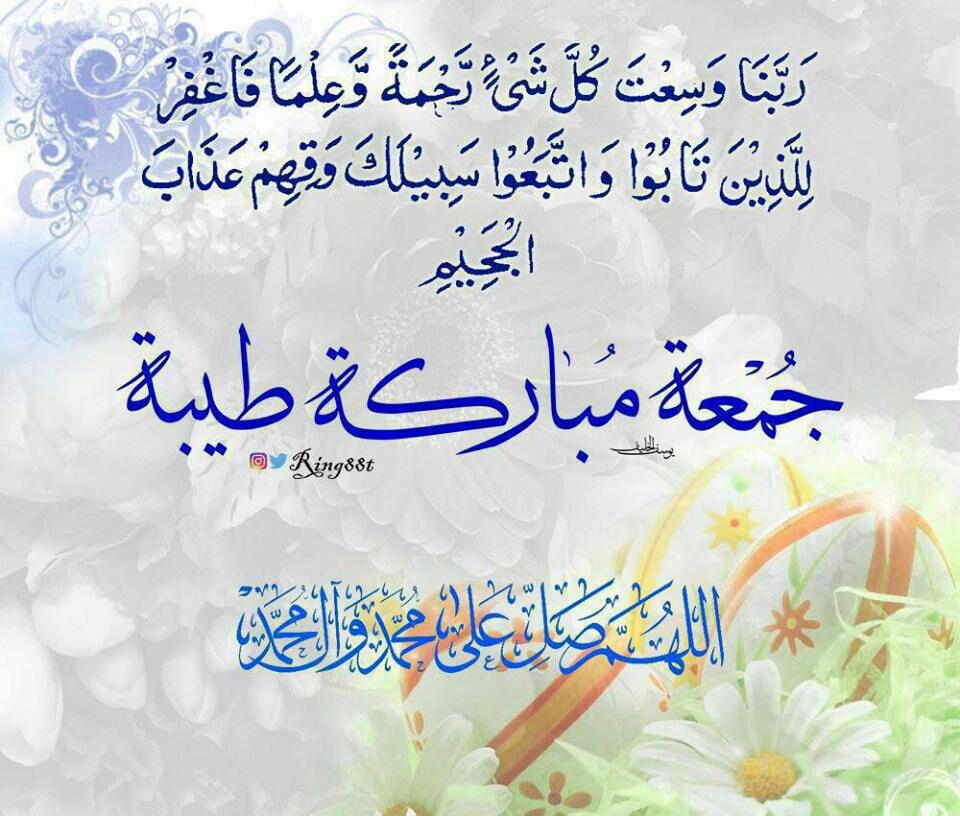 رَبَّنَا وَسِعْتَ كُلَّ شَیْءٍ رَّحْمَةً وَّعِلْمًا فَاغْفِرْ
لِلَّذِیْنَ تَابُوْا وَاتَّبَعُوْا سَبِیْلَكَ وَقِهِمْ عَذَابَ
الْجَحِیْمِ
جُمْعَة مُبارَكة طيبة
يوسف الخليف
Ring88t
اللهُمَّ صَلِّ عَلىٰ مُحمَّد وَآل مُحمَّدْ